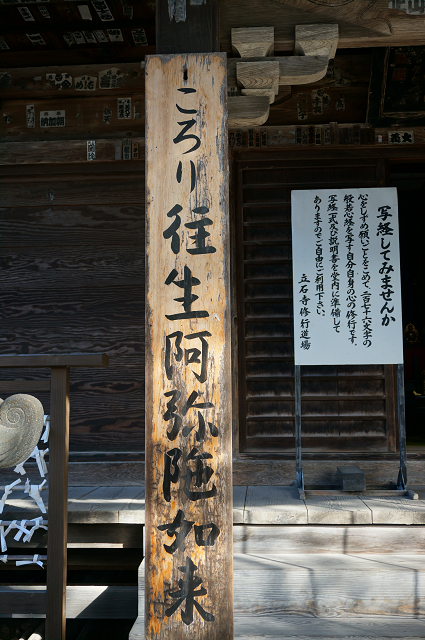 ころり往生阿弥陀如来
写経してみませんか
心をしずめ願いごとをこめて、二百七十六文字の
般若心経を写す自分自身の心の修行です。
写経一式及び説明書を堂内に準備して
ありますのでご自由にご利用下さい。
立石寺修行道場